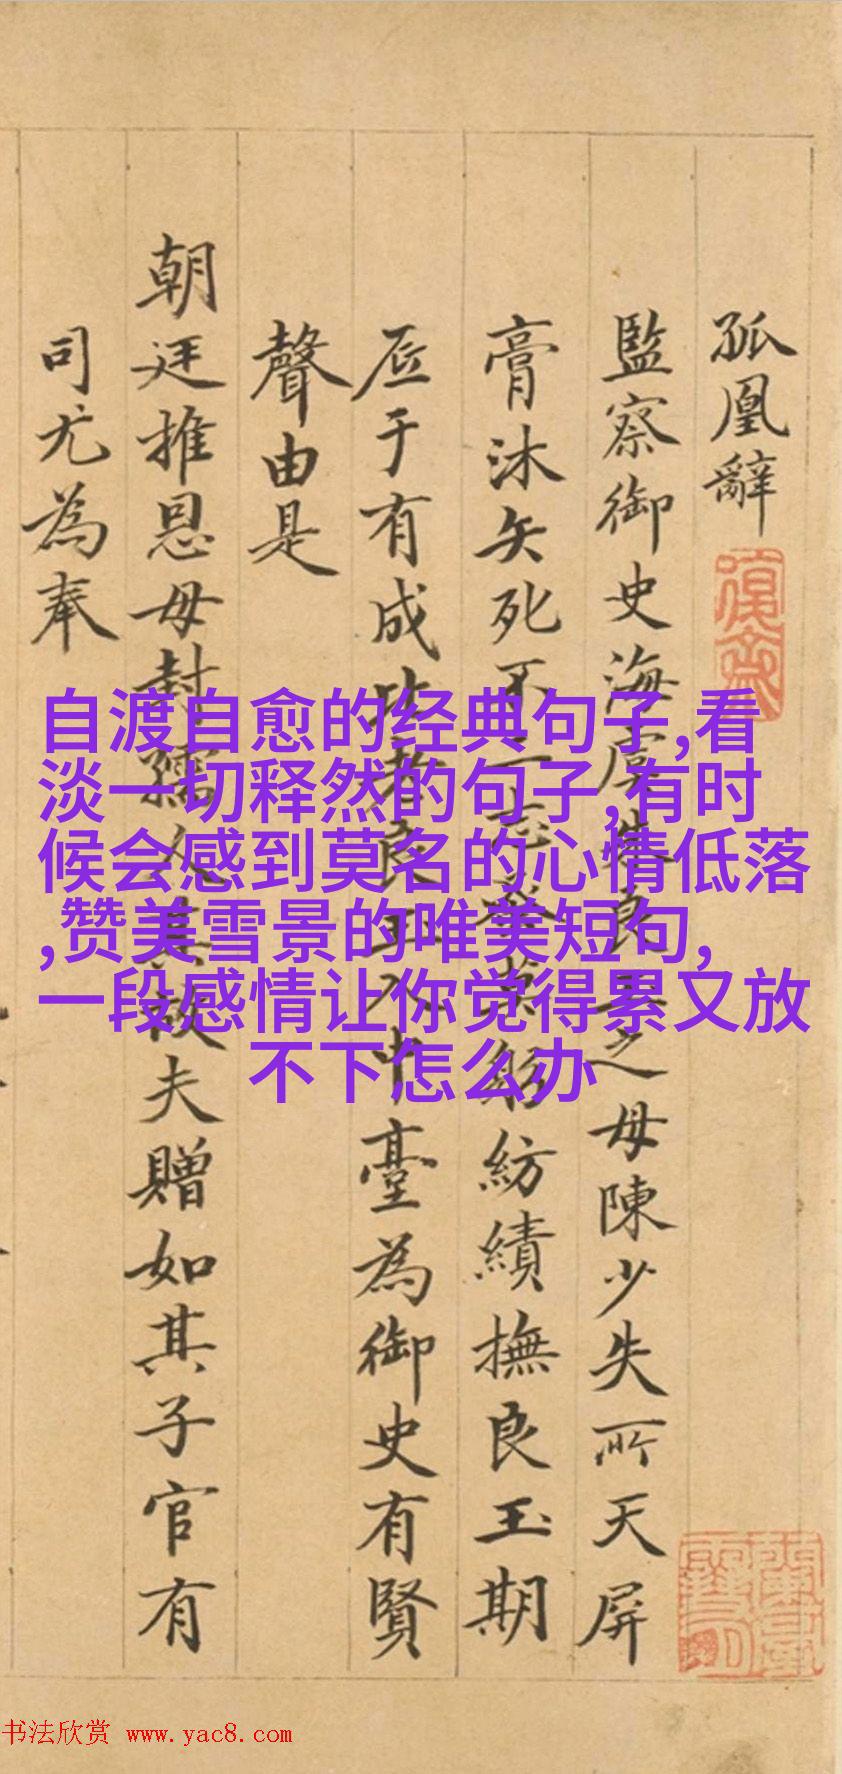 孤凰辭
監察御史海虞姚良玉之母陳少失所天屏
膏沐矢死不二志躬紡績撫良玉期
厎于有成比者良玉入中臺為御史有賢
聲由是
朝廷推恩母封孺人其故夫贈如其子官有
司尤為奉
自渡自愈的经典句子,看
淡一切释然的句子,有时
候会感到莫名的心情低落
,赞美雪景的唯美短句,
一段感情让你觉得累又放
不下怎么办
书法欣赏 www.yac8.com